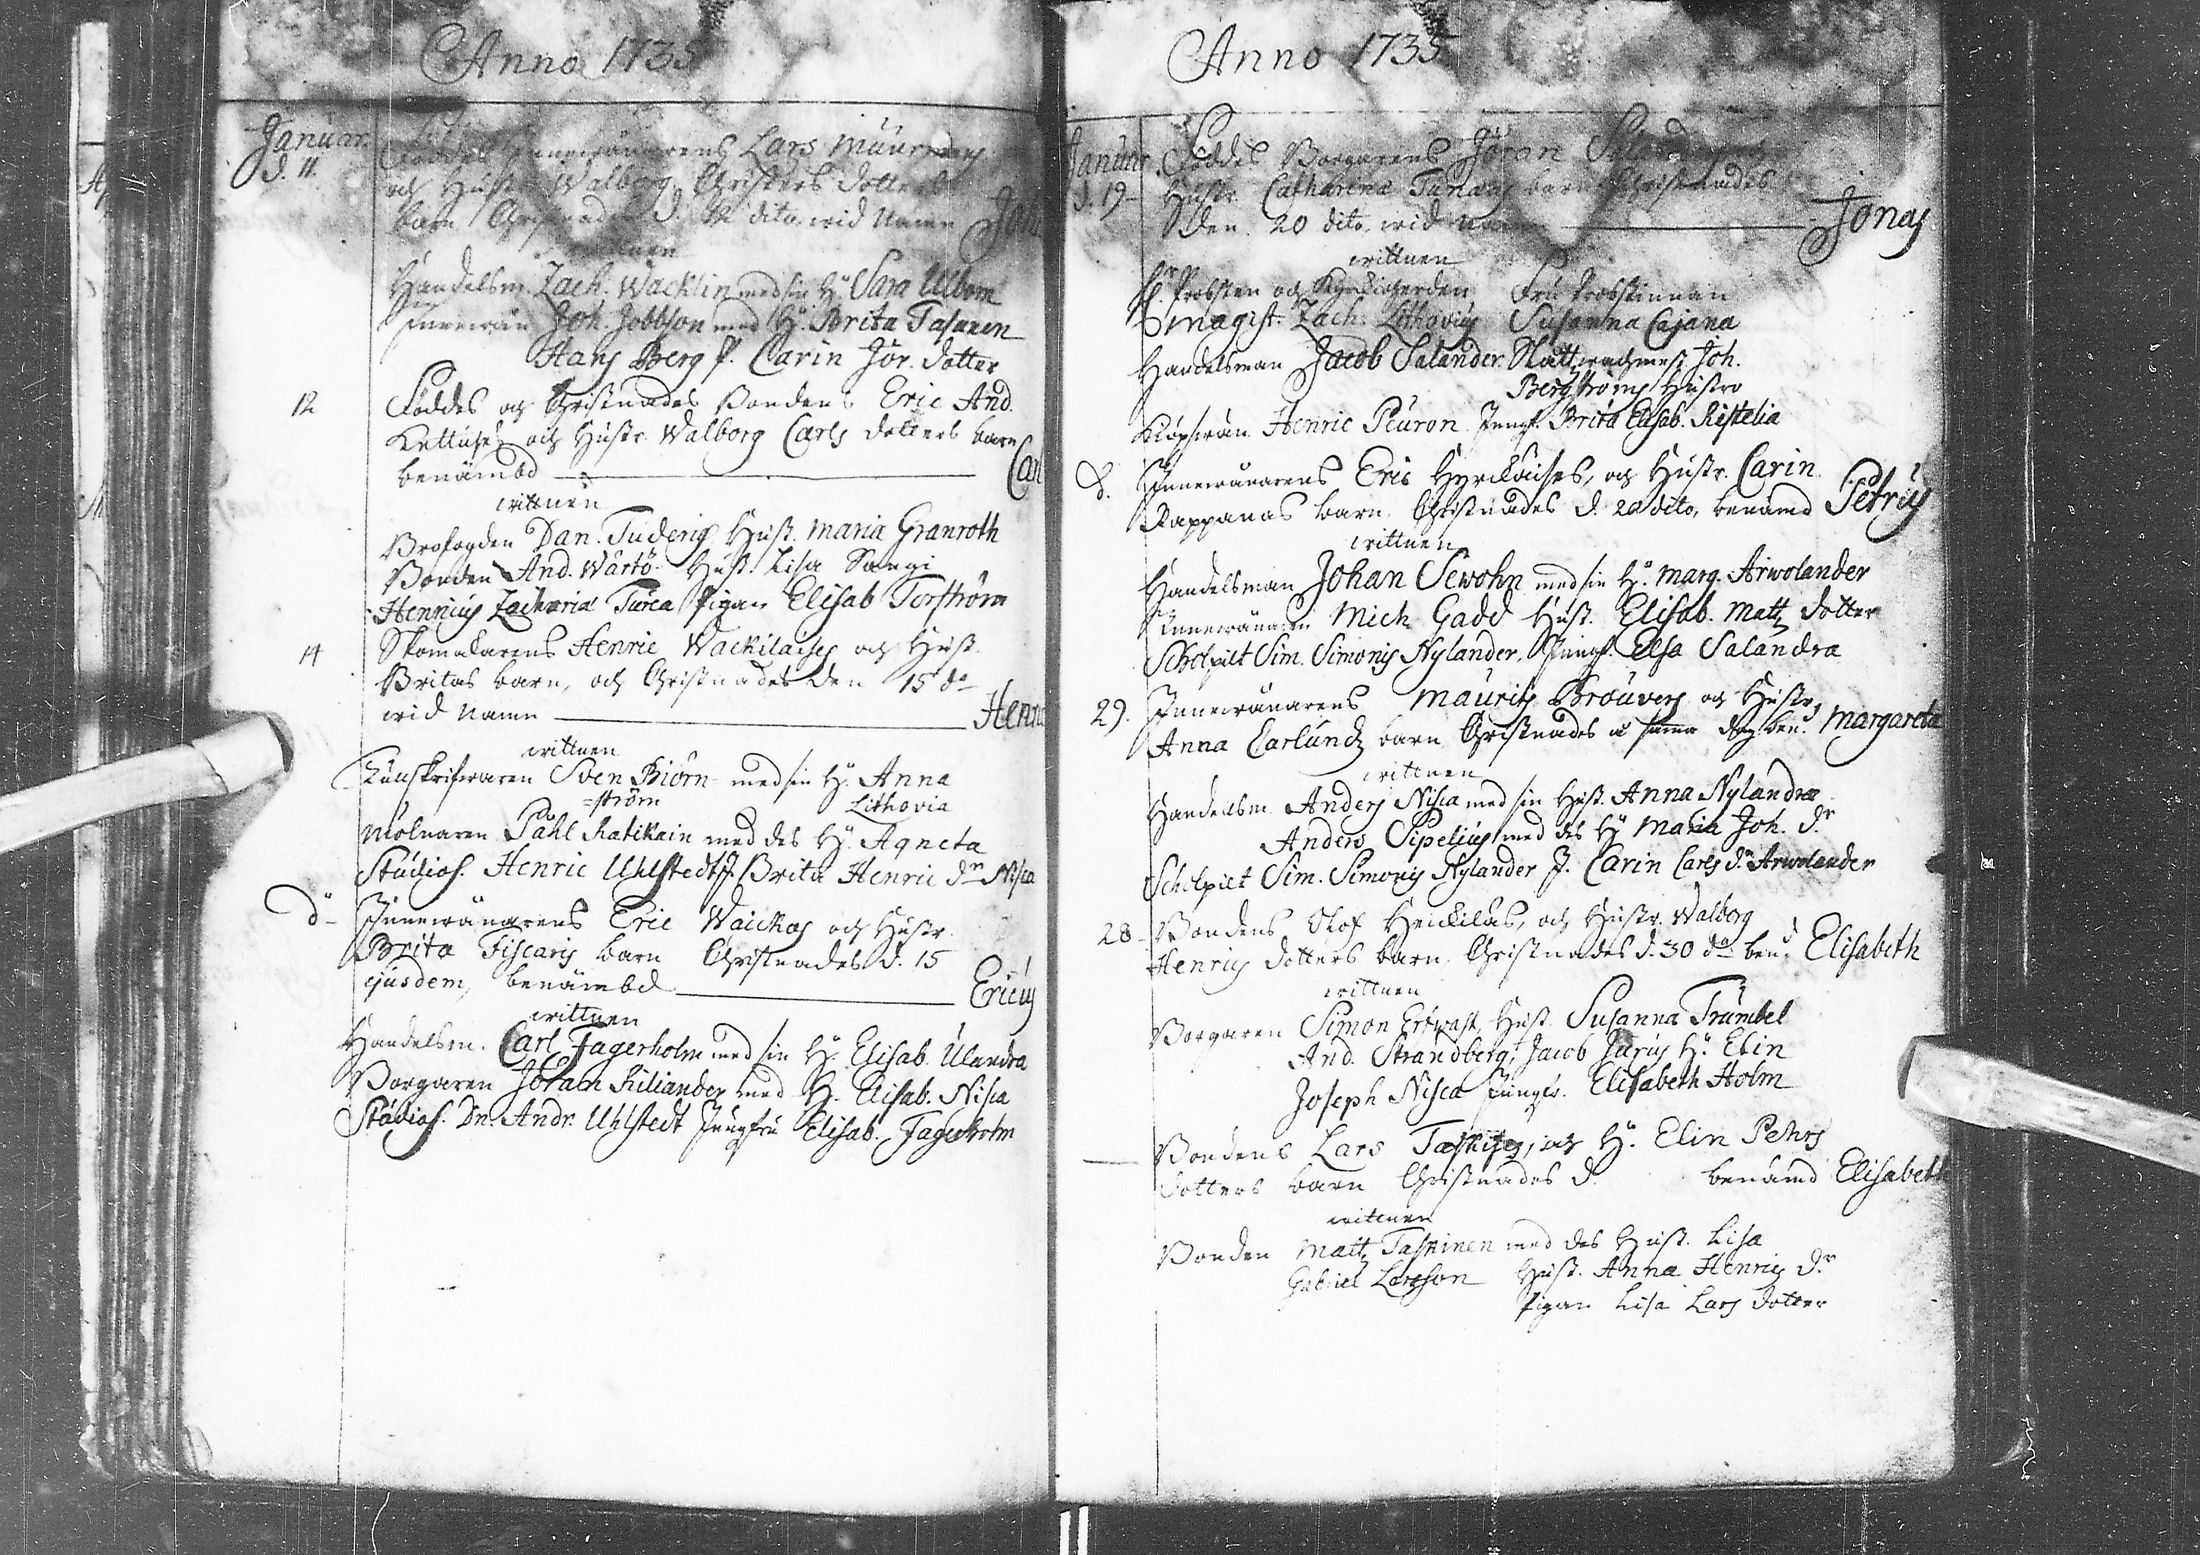 Anno 1735
Januar. Föddes Innewånarens Lars Muurmans
d. 11. och Hustr. Walborg Christers dotters
barn Christnades d. 12 dito, wid Namn
wittnen
Handelsm. Zach. Wacklin med sin H. Sara Ulbom
Innewån. Joh. Jobbson med H. Brita Tasanen
Hans Berg P. Carin Jör. dotter
12 Föddes och Christnades Bondens Eric And.
och Hustr. Walborg Carls dotters barn
benämbd Carl
wittnen
Brofogden Dan. Tuderus Hust. Maria Granroth
Bonden And. Wärtö Hust. Lisa Sangi
Henricus Zachariæ Turca Pigan Elisab Torström
14 Skomakarens Henric Wackilaises och Hust.
Britas barn, och Christnades den 15 do
wid Namn Henric
wittnen
Sven Biörn- med sin H. Anna
=ström Lithovia
Molnaren Påhl Ratikain med des H. Agneta
Studios. Henric Uhlstedt J. Brita Henric dr Nisca
do Innewånarens Eric Waickas och Hustr.
Brita Fiscaris barn Christnades d. 15
ejusdem, benämbd Ericus
wittnen
Handelsm. Carl Fagerholm med sin H. Elisab. Ulandra
Borgaren Jöran Kiliander med H. Elisab. Nisca
Studios. Dn. Andr. Uhlstedt Jungfru Elisab. Fagerholm
Anno 1735
Januar. Föddes Borgarens Jöran
d. 19 Hustr. Catharina barn Christnades
den 20 dito, wid Namn Jonas
wittnen
H. Probsten och Kyrkioherden Fru Probstinnan
Magist. Zach. Lithovius Susanna Cajana
Handelsman Jacob Salander Joh.
Bergströms Hustro
Köpswän Henric Peuron Jungf. Brita Elisab. Ristelia
d. Innewånarens Eric Hyrckäises, och Hustr. Carin
Rappanas barn Christnades d. 20 dito, benämd Petrus
wittnen
Handelsman Johan Sewohn med sin H. Marg. Arwolander
Innewånaren Mich. Gadd Hust. Elisab. Matts dotter
Scholpilt Sim. Simonis Nylander. Jungf. Elsa Salandra
29. Innewånarens Mauritz Brouvers och Hustr.
Anna Carlunds barn Christnades a samma dag ben. Margareta
wittnen
Handelsm. Anders Nisca med sin Hust. Anna Nylandra
Anders Sipelius med des H. Maria Joh. dr
Scholpilt Sim. Simonis Nylander J. Carin Carls dr Arwolander
28 Bondens Olof Heickilas, och Hustr. Walborg
Henrics dotters barn Christnades d. 30 do ben.d Elisabeth
wittnen
Borgaren Simon Erfwast, Hust. Susanna Trumbel
And. Strandberg, Jacob Jurus H. Elin
Joseph Nisca Jungfr. Elisabeth Holm
Bondens Lars Taskises, och H. Elin Pehrs
dotters barn Christnades d. benämd Elisabeth
wittnen
Bonden Matts Taskinen med des Hust. Lisa
Gabriel Larsson Hust. Anna Henrics dr
Pigan Lisa Lars dotter